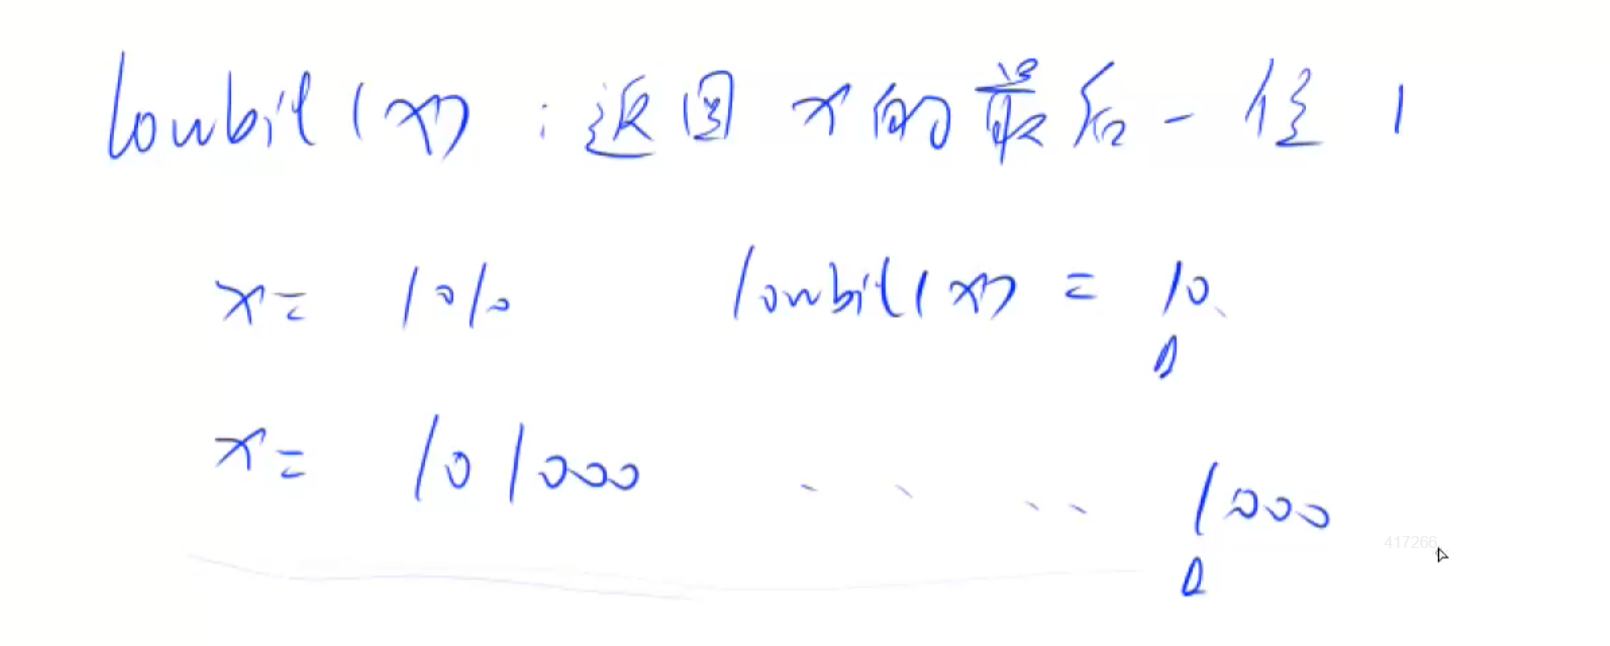 lowbit(x) : 返回 x 的最后一位 1
x = 1010 lowbit(x) = 10
x = 101000 . . . . . . 1000
417266